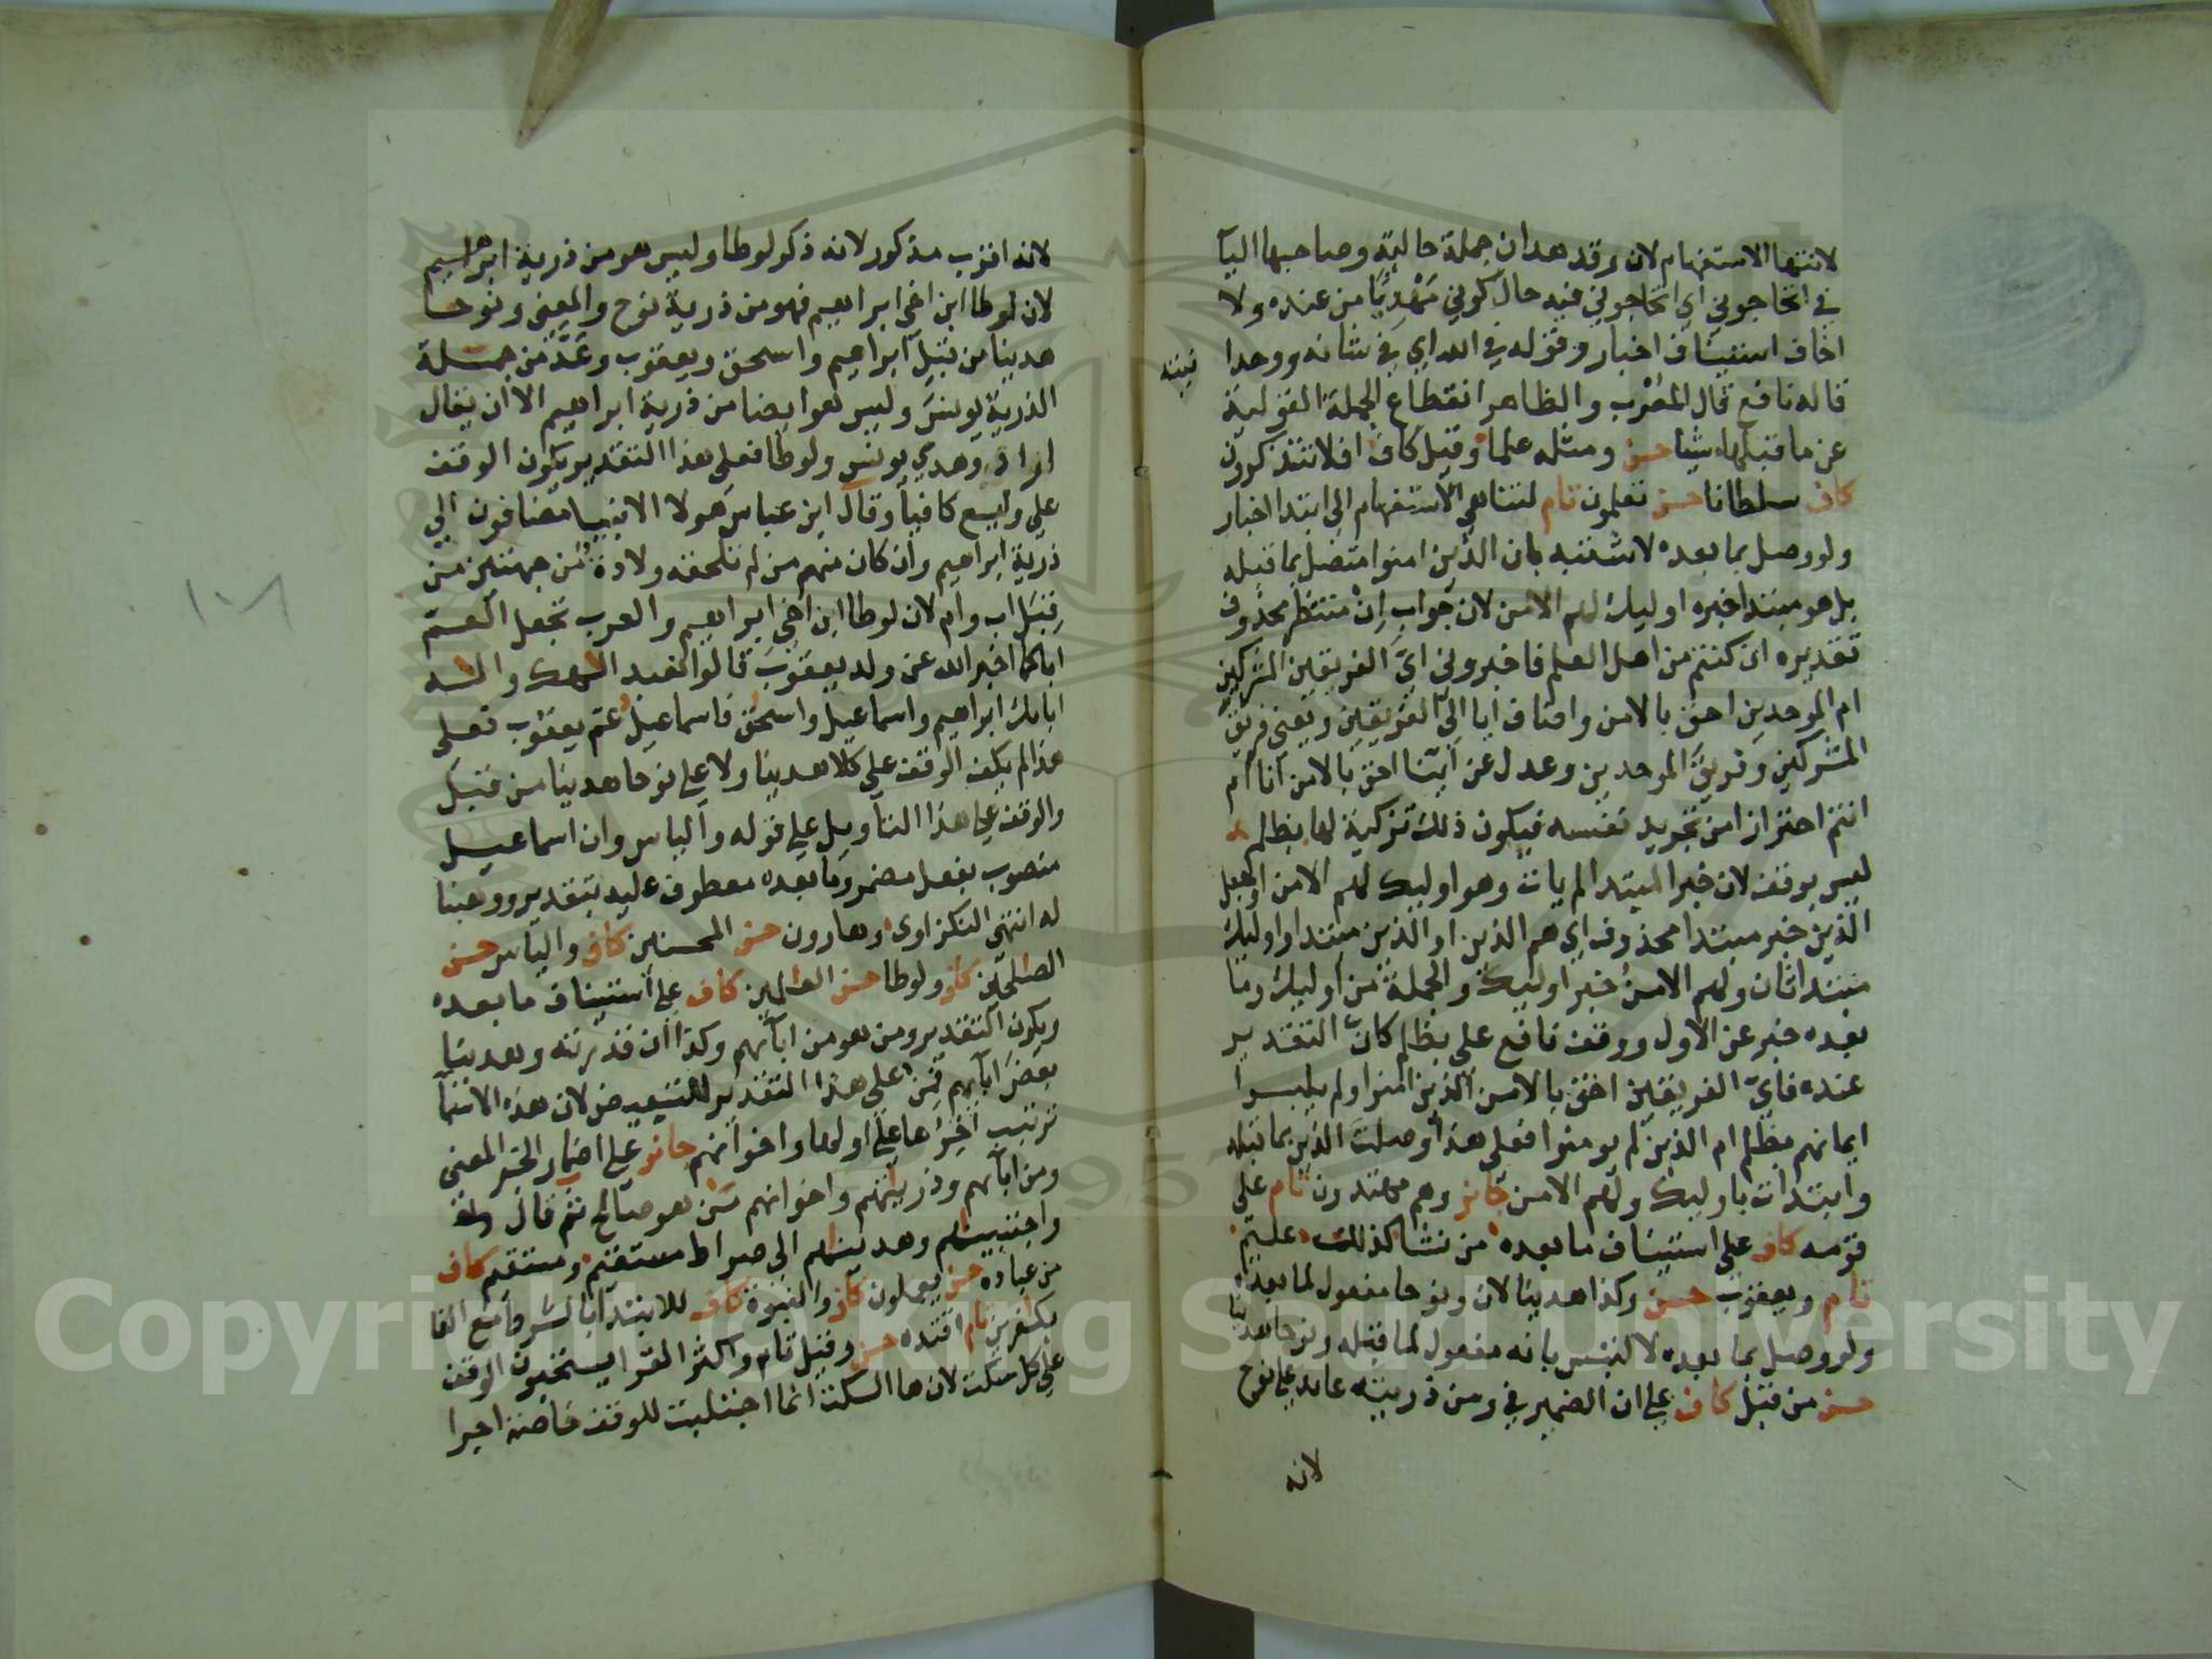 لانتها الاستفهام لان وقد هدان جملة حالية وصاحبها اليآ
في اتحاجوني اي اتحاجوني فيه حال كوني مَهْدِيًا من عنده ولا
اخاف استيناف اخبار وقوله في الله اي في شانه ووحدا
نيته
قاله نافع قال المعْرب والظاهر انقطاع الجملة القولية
عن ما قبلها، شيا حسن ومثله علما وقيل كاف افلا تتذكرون
كاف سلطانا حسن تعلمون تام لتناهي الاستفهام الى ابتدا اخبار
ولو وصل بما بعده لاشتبه بان الذين امنوا متصل بما قبله
بل هو مبتدا خبره اوليك لهم الامن لان جواب اِنْ منتظر محذوف
تقديره ان كنتم من اهل العلم فاخبروني ايّ الفريقين المشركين
ام الموحدين احق بالامن واضاف ايا الى الفريقين ويعني فريق
المشركين وفريق الموحدين وعدل عن اينا احق بالامن انا ام
انتم احترازا من تجريد نفسه فيكون ذلك تزكية لها بظلم
ليس بوقف لان خبر المبتدا لم يات وهو اوليك لهم الامن اوجعل
الذين خبر مبتدا محذوف اي هم الذين او الذين مبتدا واوليك
مبتدا ثان ولهم الامن خبر اوليك والجملة من اوليك وما
بعده خبر عن الاول ووقف نافع على بظلم كان التقدير
عنده فايّ الفريقين احق بالامن الذين امنوا ولم يلبسوا
ايمانهم بظلم ام الذين لم يومنوا فعلى هذا وصلت الذين بما قبله
وابتدات باوليك ولهم الامن كاف وهم مهتدون تام على
قومه كاف على استيناف ما بعده من نشا كذلك عليم
تام ويعقوب حسن وكذا هدينا لان ونوحا مفعول لما بعده
ولو وصل بما بعده لالتبس بانه مفعول لما قبله ونوحا هدينا
حسن من قبل كاف على ان الضمير في ومن ذريته عايد على نوح
لانه
لانه اقرب مذكور لانه ذكر لوطا وليس هو من ذرية ابراهيم
لان لوطا ابن اخي ابراهيم فهو من ذرية نوح والمعنى ونوحا
هدينا من قبل ابراهيم واسحق ويعقوب وعَدّ من جملة
الذرية يونس وليس هو ايضا من ذرية ابراهيم الا ان يقال
اراد وهدي يونس ولوطا فعلى هذا التقدير يكون الوقف
على وليسع كافيا وقال ابن عباس هولا الانبيا مضافون الى
ذرية ابراهيم وان كان منهم من لم تلحقه ولادة من جهتين من
قِبَل اب وام لان لوطا ابن اخي ابراهيم والعرب تجعل العم
ابا كما اخبر الله عن ولد يعقوب قالوا نعبد الهك واله
ابايك ابراهيم واسماعيل واسحق فاسماعيل عم يعقوب فعلى
هذا لم يكف الوقف على كلا هدينا ولا على نوحا هدينا من قبل
والوقف على هذا التاويل على قوله والياس وان اسماعيل
منصوب بفعل مضمر وما بعده معطوف عليه بتقدير ووهبنا
له انتهى النكزاوى وهارون حسن المحسنين كاف والياس حسن
الصلحين كاف ولوطا حسن العالمين كاف على استيناف ما بعده
ويكون التقدير ومن هو من ابآئهم وكذا ان قدرته وهدينا
بعض ابآيهم فمن على هذا التقدير للتبعيض لان هذه الاسمآ
ترتب اخرها على اولها واخوانهم جائز على اضمار الخبر المعنى
ومن ابآيهم وذريتهم واخوانهم مَن هو صالح ثم قال
واجتبينهم وهدينهم الى صراط مستقيم ومستقيم كاف
من عباده حسن يعملون كاف والنبوة كاف للابتدآ بالشرط مع الفا
بكفرين تام اقتده حسن وقيل تام واكثر القرا يستحبون الوقف
على كل سكت لان ها السكت انما اجتلبت للوقف خاصة اجرا
١٠٨
Copyright © King Saud University
1957